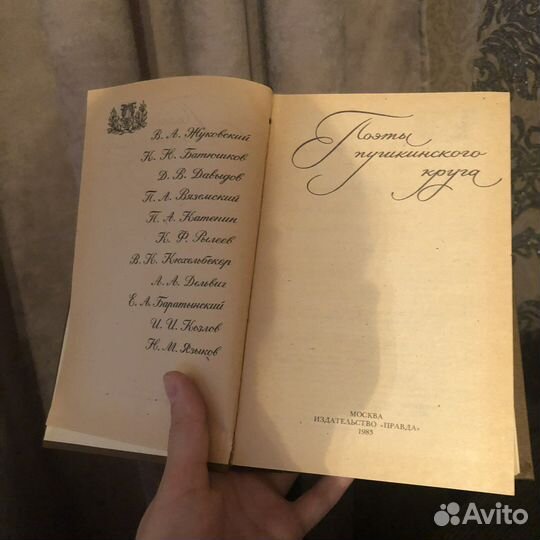 В. А. Жуковский
К. Н. Батюшков
Д. В. Давыдов
П. А. Вяземский
П. А. Катенин
К. Ф. Рылеев
В. К. Кюхельбекер
А. А. Дельвиг
Е. А. Баратынский
И. И. Козлов
Н. М. Языков
Поэты
пушкинского
круга
МОСКВА
ИЗДАТЕЛЬСТВО «ПРАВДА»
1983
Avito